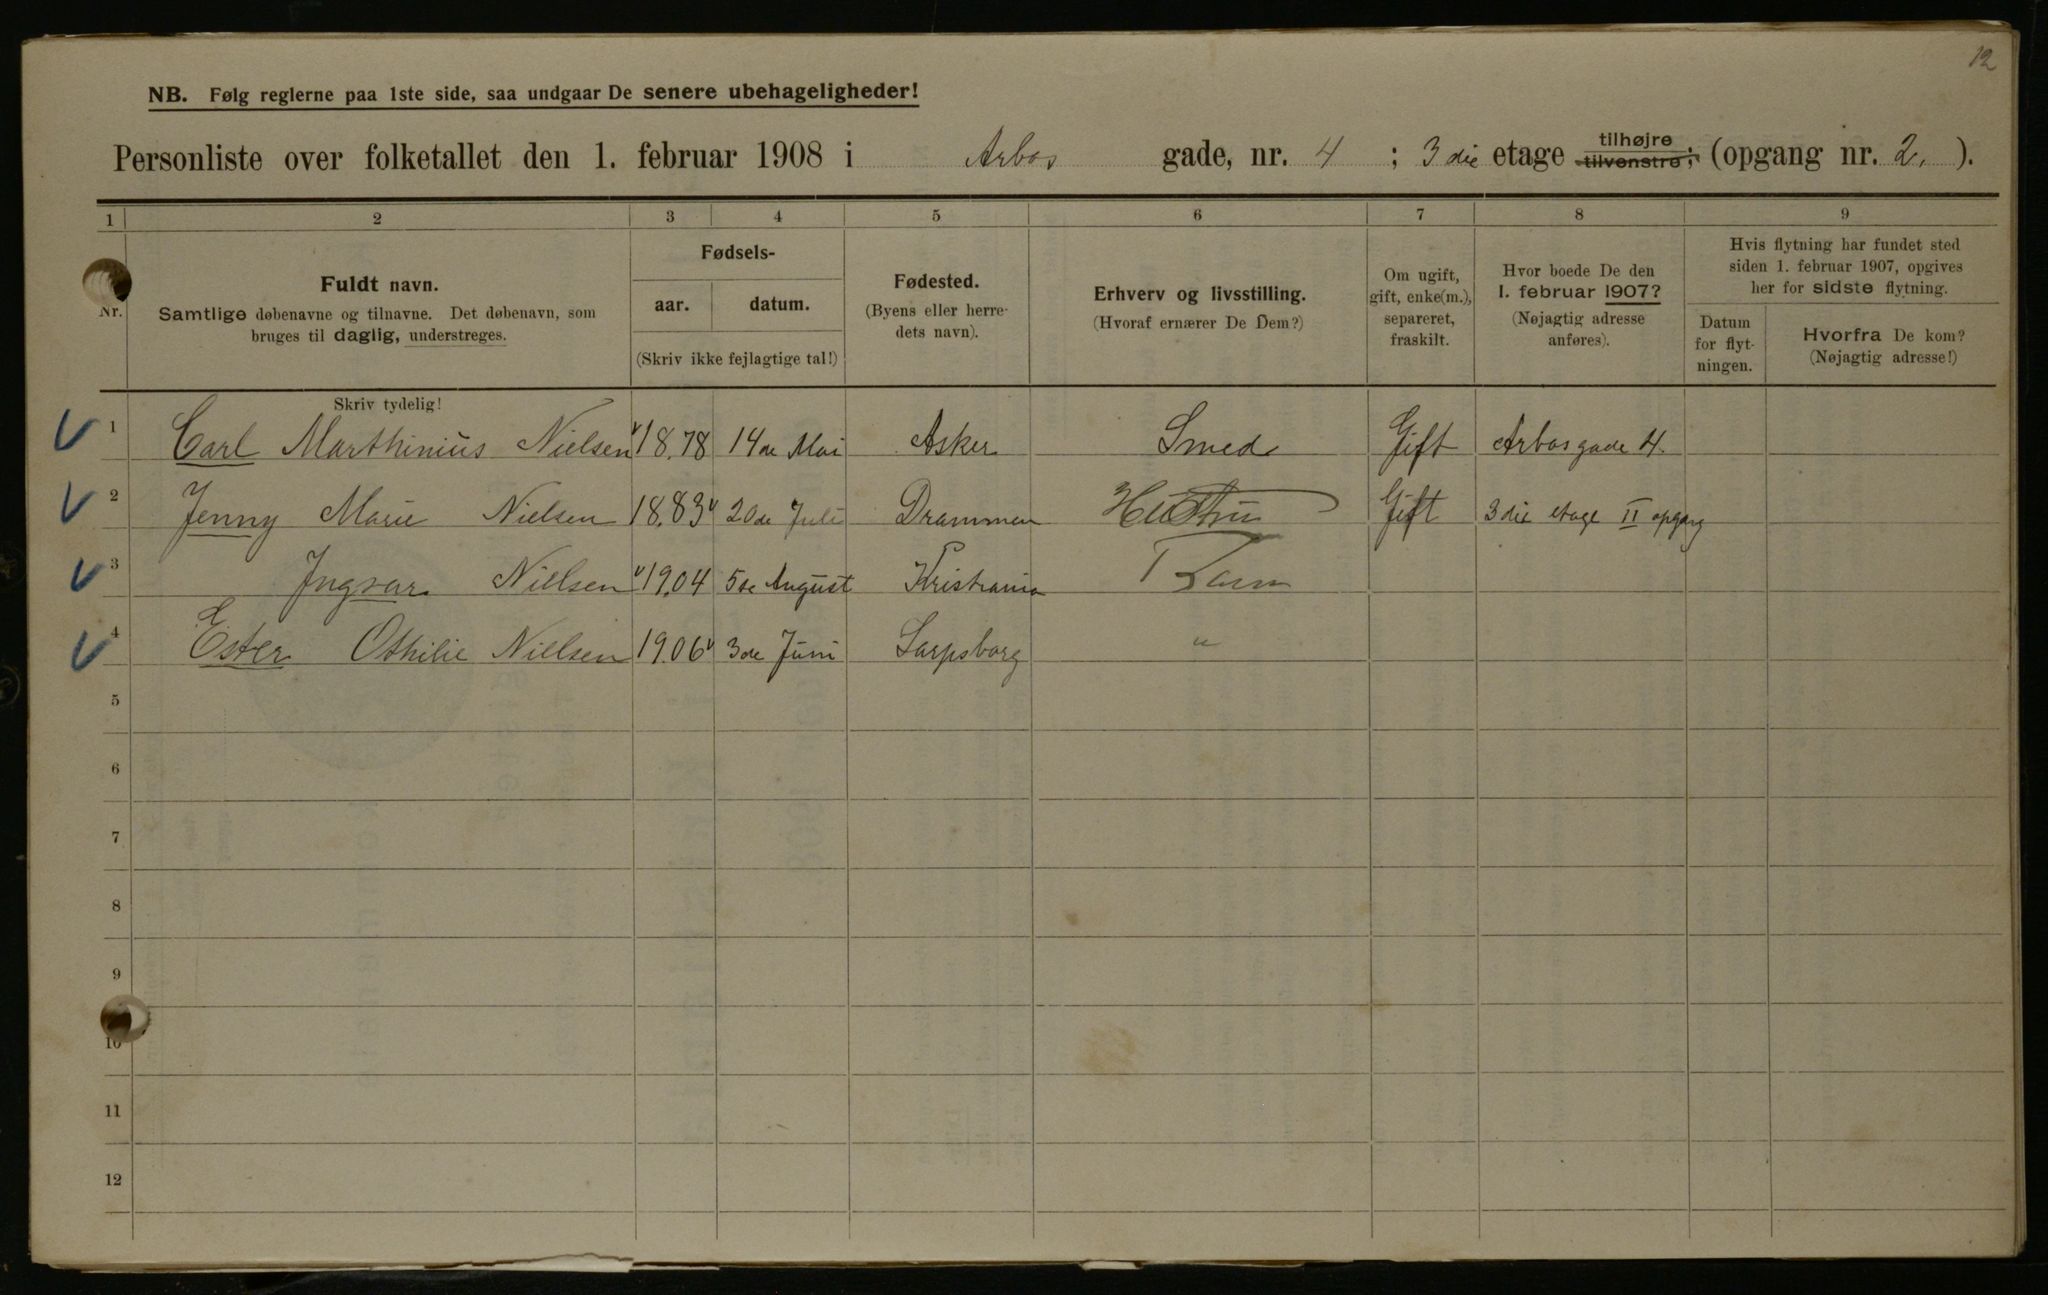 12
NB. Følg reglerne paa 1ste side, saa undgaar De senere ubehageligheder!
Personliste over folketallet den 1. februar 1908 i Arbos gade, nr. 4 ; 3 die etage tilhøjre tilvenstre; (opgang nr. 2. ).
1 2 3 4 5 6 7 8 9
Nr.
Fuldt navn.
Samtlige døbenavne og tilnavne. Det døbenavn, som
bruges til daglig, understreges.
Fødsels-
aar. datum.
(Skriv ikke fejlagtige tal!)
Fødested.
(Byens eller herre-
dets navn).
Erhverv og livsstilling.
(Hvoraf ernærer De Dem?)
Om ugift,
gift, enke(m.),
separeret,
fraskilt.
Hvor boede De den
1. februar 1907?
(Nøjagtig adresse
anføres).
Hvis flytning har fundet sted
siden 1. februar 1907, opgives
her for sidste flytning.
Datum
for flyt-
ningen.
Hvorfra De kom?
(Nøjagtig adresse!)
Skriv tydelig!
1 Carl Marthinius Nielsen 18.78 14de Mai Asker Smed Gift Arbosgade 4.
2 Jenny Marie Nielsen 18.83 20de Juli Drammen Hustru Gift 3die etage II opgang
3 Ingvar Nielsen 19.04 5te August Kristiania Barn
4 Ester Othilie Nielsen 19.06 3de Juni Sarpsborg "
5
6
7
8
9
10
11
12